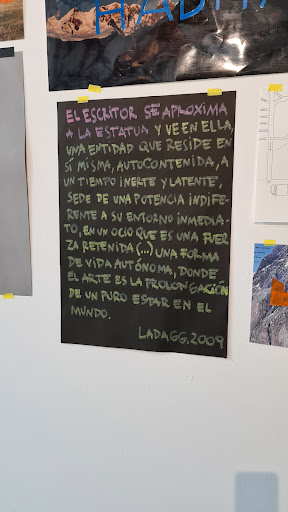 HABITA
EL ESCRITOR SE APROXIMA
A LA ESTATUA Y VE EN ELLA,
UNA ENTIDAD QUE RESIDE EN
SÍ MISMA, AUTOCONTENIDA, A
UN TIEMPO INERTE Y LATENTE,
SEDE DE UNA POTENCIA INDIFE-
RENTE A SU ENTORNO INMEDIA-
TO, EN UN OCIO QUE ES UNA FUER
ZA RETENIDA (...) UNA FORMA
DE VIDA AUTÓNOMA, DONDE
EL ARTE ES LA PROLONGACIÓN
DE UN PURO ESTAR EN EL
MUNDO.
LADAGG. 2009